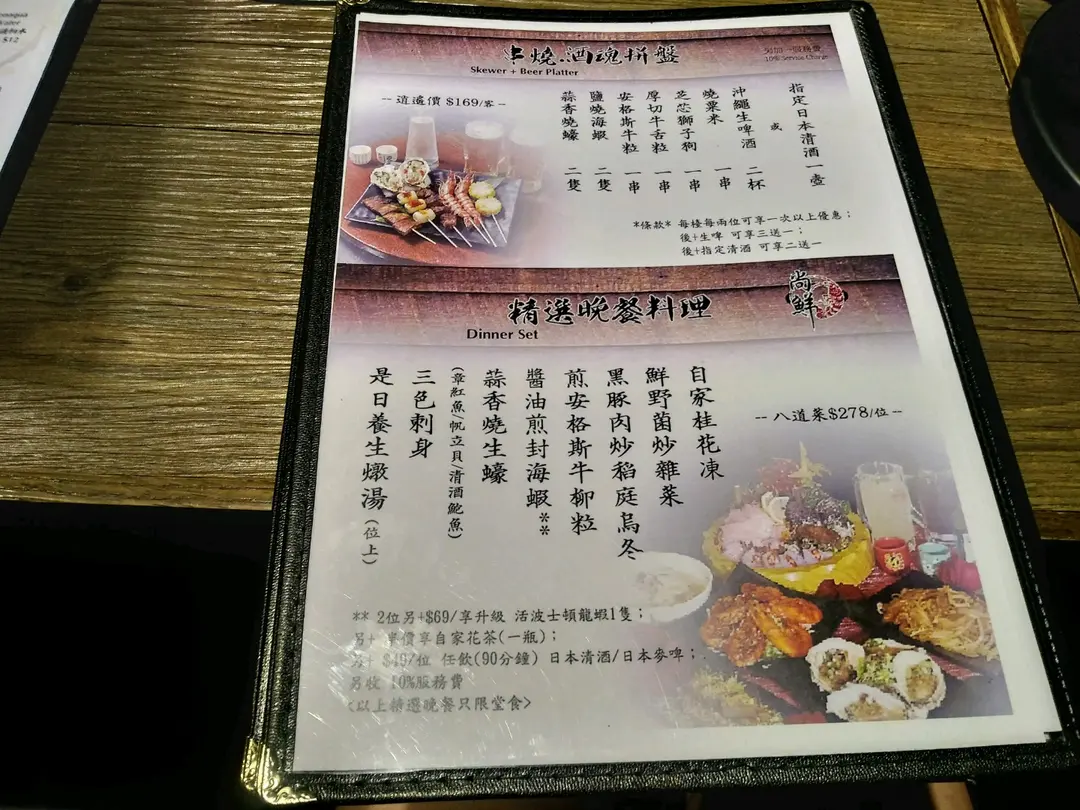 串燒.酒魂拼盤
Skewer + Beer Platter
另加一服務費
10% Service Charge
-- 逍遙價 $169/客 --
指定日本清酒 一壺
或
沖繩生啤酒 二杯
燒粟米 一串
芝芯獅子狗 一串
厚切牛舌粒 一串
安格斯牛粒 一串
鹽燒海蝦 二隻
蒜香燒蠔 二隻
*條款* 每檯每兩位可享一次以上優惠；
後+生啤 可享三送一；
後+指定清酒 可享二送一
精選晚餐料理
Dinner Set
尚鮮
-- 八道菜$278/位 --
自家桂花凍
鮮野菌炒雜菜
黑豚肉炒稻庭烏冬
煎安格斯牛柳粒
醬油煎封海蝦**
蒜香燒生蠔
(章紅魚/帆立貝/清酒鮑魚)
三色刺身
是日養生燉湯(位上)
** 2位另+$69/享升級 活波士頓龍蝦1隻；
另+ 半價享自家花茶(一瓶)；
另+ $49/位 任飲(90分鐘) 日本清酒/日本麥啤；
另收 10%服務費
<以上精選晚餐只限堂食>
$12